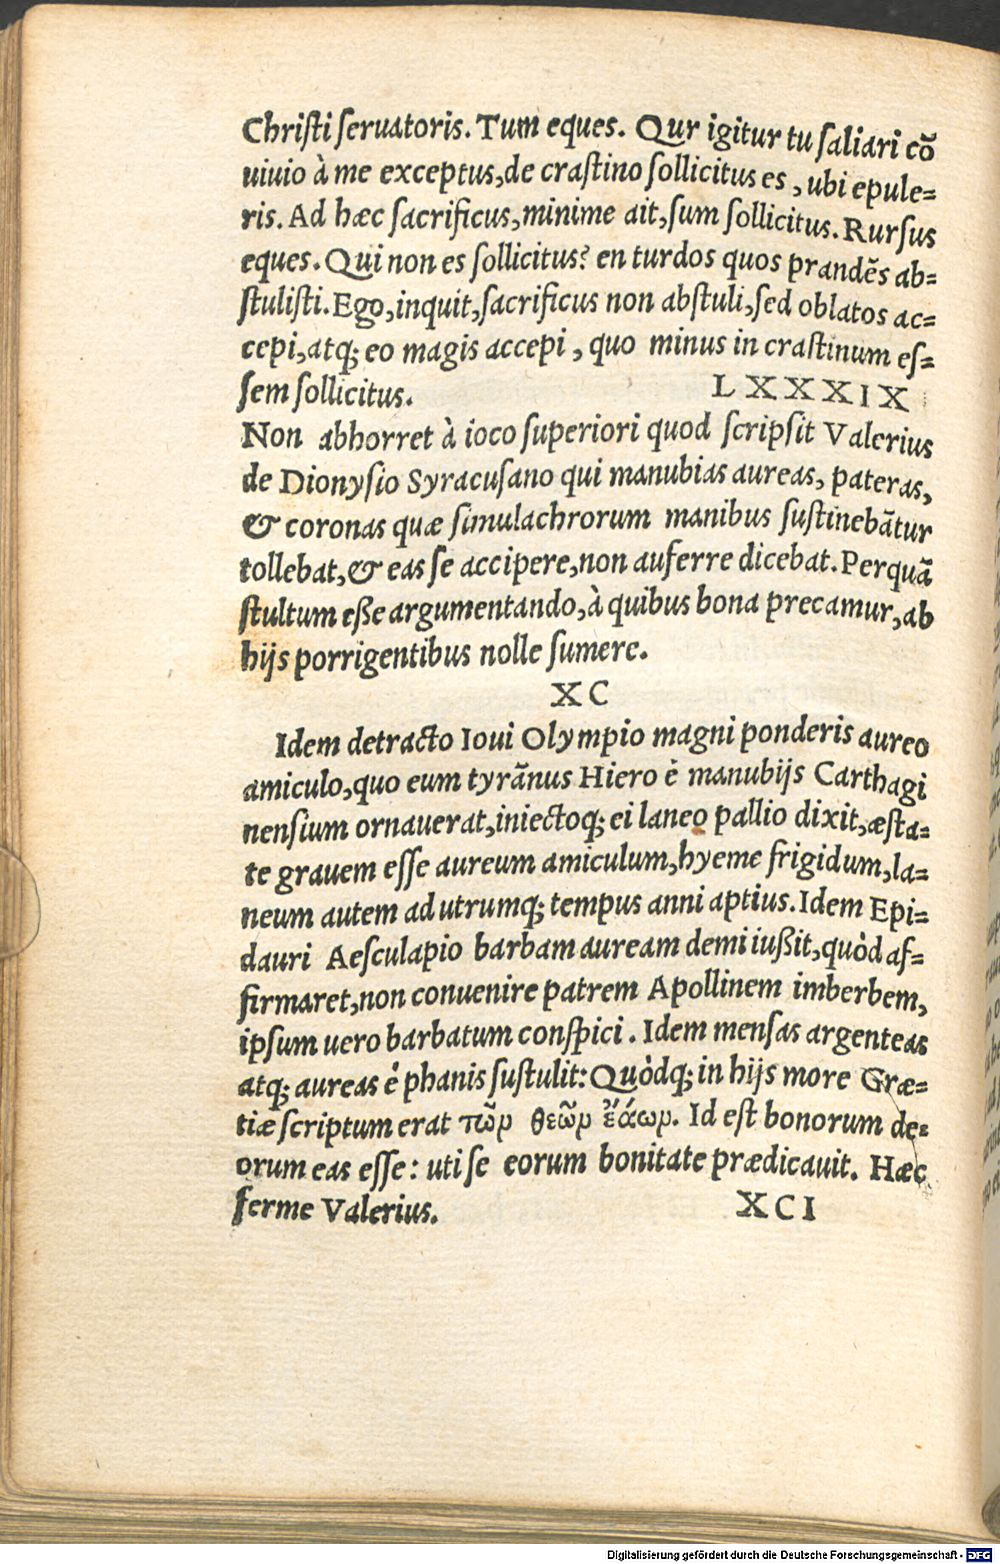 Chriſti ſeruatoris. Tum eques. Qur igitur tu ſaliari cõ
uiuio à me exceptus, de craſtino ſollicitus es, ubi epule-
ris. Ad hæc ſacrificus, minime ait, ſum ſollicitus. Rurſus
eques. Qui non es ſollicitus? en turdos quos prandẽs ab-
ſtuliſti. Ego, inquit, ſacrificus non abſtuli, ſed oblatos ac-
cepi, atq; eo magis accepi, quo minus in craſtinum eſ-
ſem ſollicitus. LXXXIX
Non abhorret à ioco ſuperiori quod ſcripſit Valerius
de Dionyſio Syracuſano qui manubias aureas, pateras,
& coronas quæ ſimulachrorum manibus ſuſtinebãtur
tollebat, & eas ſe accipere, non auferre dicebat. Perquã
ſtultum eße argumentando, à quibus bona precamur, ab
hijs porrigentibus nolle ſumere.
XC
Idem detracto Ioui Olympio magni ponderis aureo
amiculo, quo eum tyrãnus Hiero è manubijs Carthagi
nenſium ornauerat, iniectoq; ei laneo pallio dixit, æſta-
te grauem eſſe aureum amiculum, hyeme frigidum, la-
neum autem ad utrumq; tempus anni aptius. Idem Epi-
dauri Aeſculapio barbam auream demi iußit, quòd af-
firmaret, non conuenire patrem Apollinem imberbem,
ipſum uero barbatum conſpici. Idem menſas argenteas
atq; aureas è phanis ſuſtulit: Quòdq; in hijs more Græ-
tiæ ſcriptum erat τῶν θεῶν ἐάων. Id eſt bonorum de-
orum eas eſſe: uti ſe eorum bonitate prædicauit. Hæc
ferme Valerius. XCI
Digitalisierung gefördert durch die Deutsche Forschungsgemeinschaft - DFG